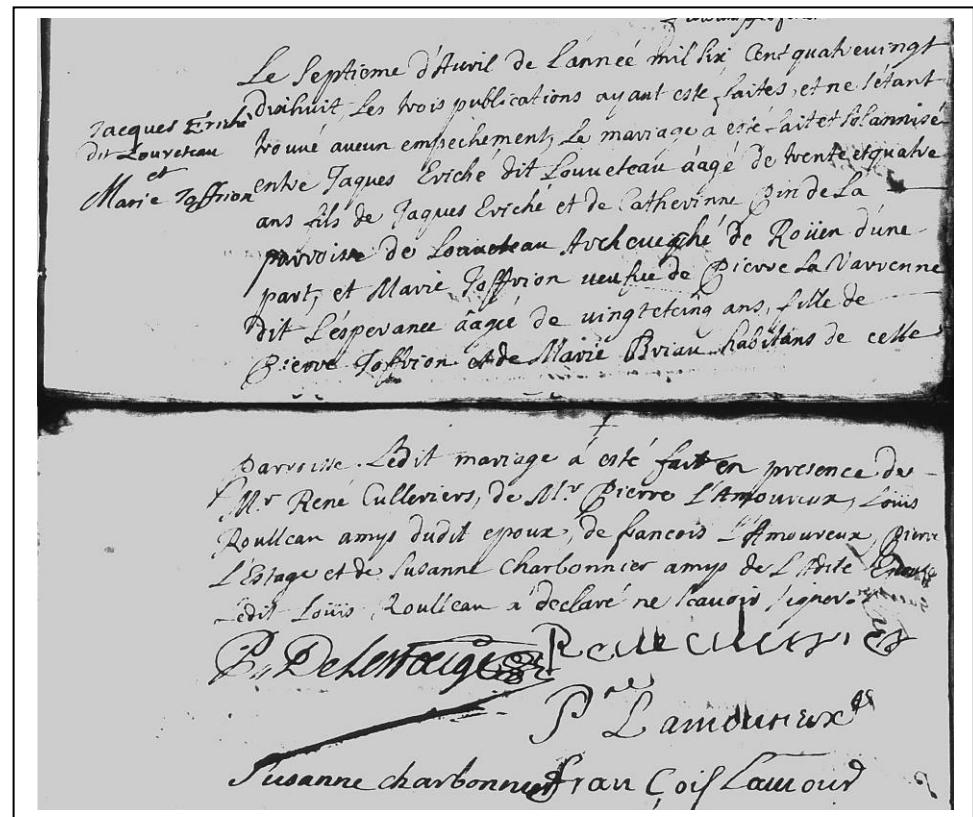 Le Septiéme d'Avril de L'année mil six Cent quatrevingt
Jacques Eriché
dit Louveteau
et
Marie Joffrion
dixhuit, Les trois publications ayant esté faites, et ne s'étant
trouvé aucun empechement, Le mariage a esté fait et solannisé
entre Jaques Eviché dit Louveteau âagé de trente et quatre
ans fils de Jaques Eviché et de Catherinne Pin de La
parroisse de Louveteau Archevesché de Roüen d'une
part, et Marie Joffrion veufve de Pierre La Varrenne
dit L'ésperance âagée de vingtetcinq ans, fille de
Pierre Joffrion et de Marie Briau habitans de cette
parroisse. Ledit mariage a esté fait en presence de
Mr. René Culleriers, de Mr. Pierre L'Amoureux, Loüis
Roulleau amys dudit epoux, de francois L'Amoureux, Pierre
L'Estage et de Susanne Charbonnier amys de L'Adite Epouse
Ledit Loüis Roulleau a declaré ne scavoir signer.
P. DeLestage Rene cullerier
Pre Lamoureux
Susanne charbonnier fran çois Lamour